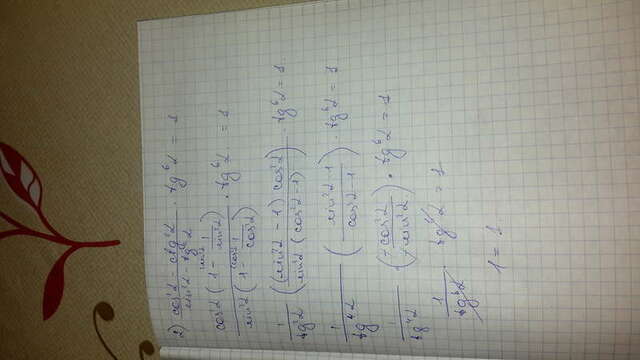 2) (cos²α - ctg²α)/(sin²α - tg²α) · tg⁶α = 1
cos²α (1 - 1/sin²α) / sin²α (1 - 1/cos²α) · tg⁶α = 1
1/tg²α ((sin²α - 1) cos²α / sin²α (cos²α - 1)) · tg⁶α = 1.
1/tg⁴α (sin²α - 1 / cos²α - 1) · tg⁶α = 1
1/tg⁴α (-cos²α / -sin²α) · tg⁶α = 1
1/tg⁶α tg⁶α = 1
1 = 1.